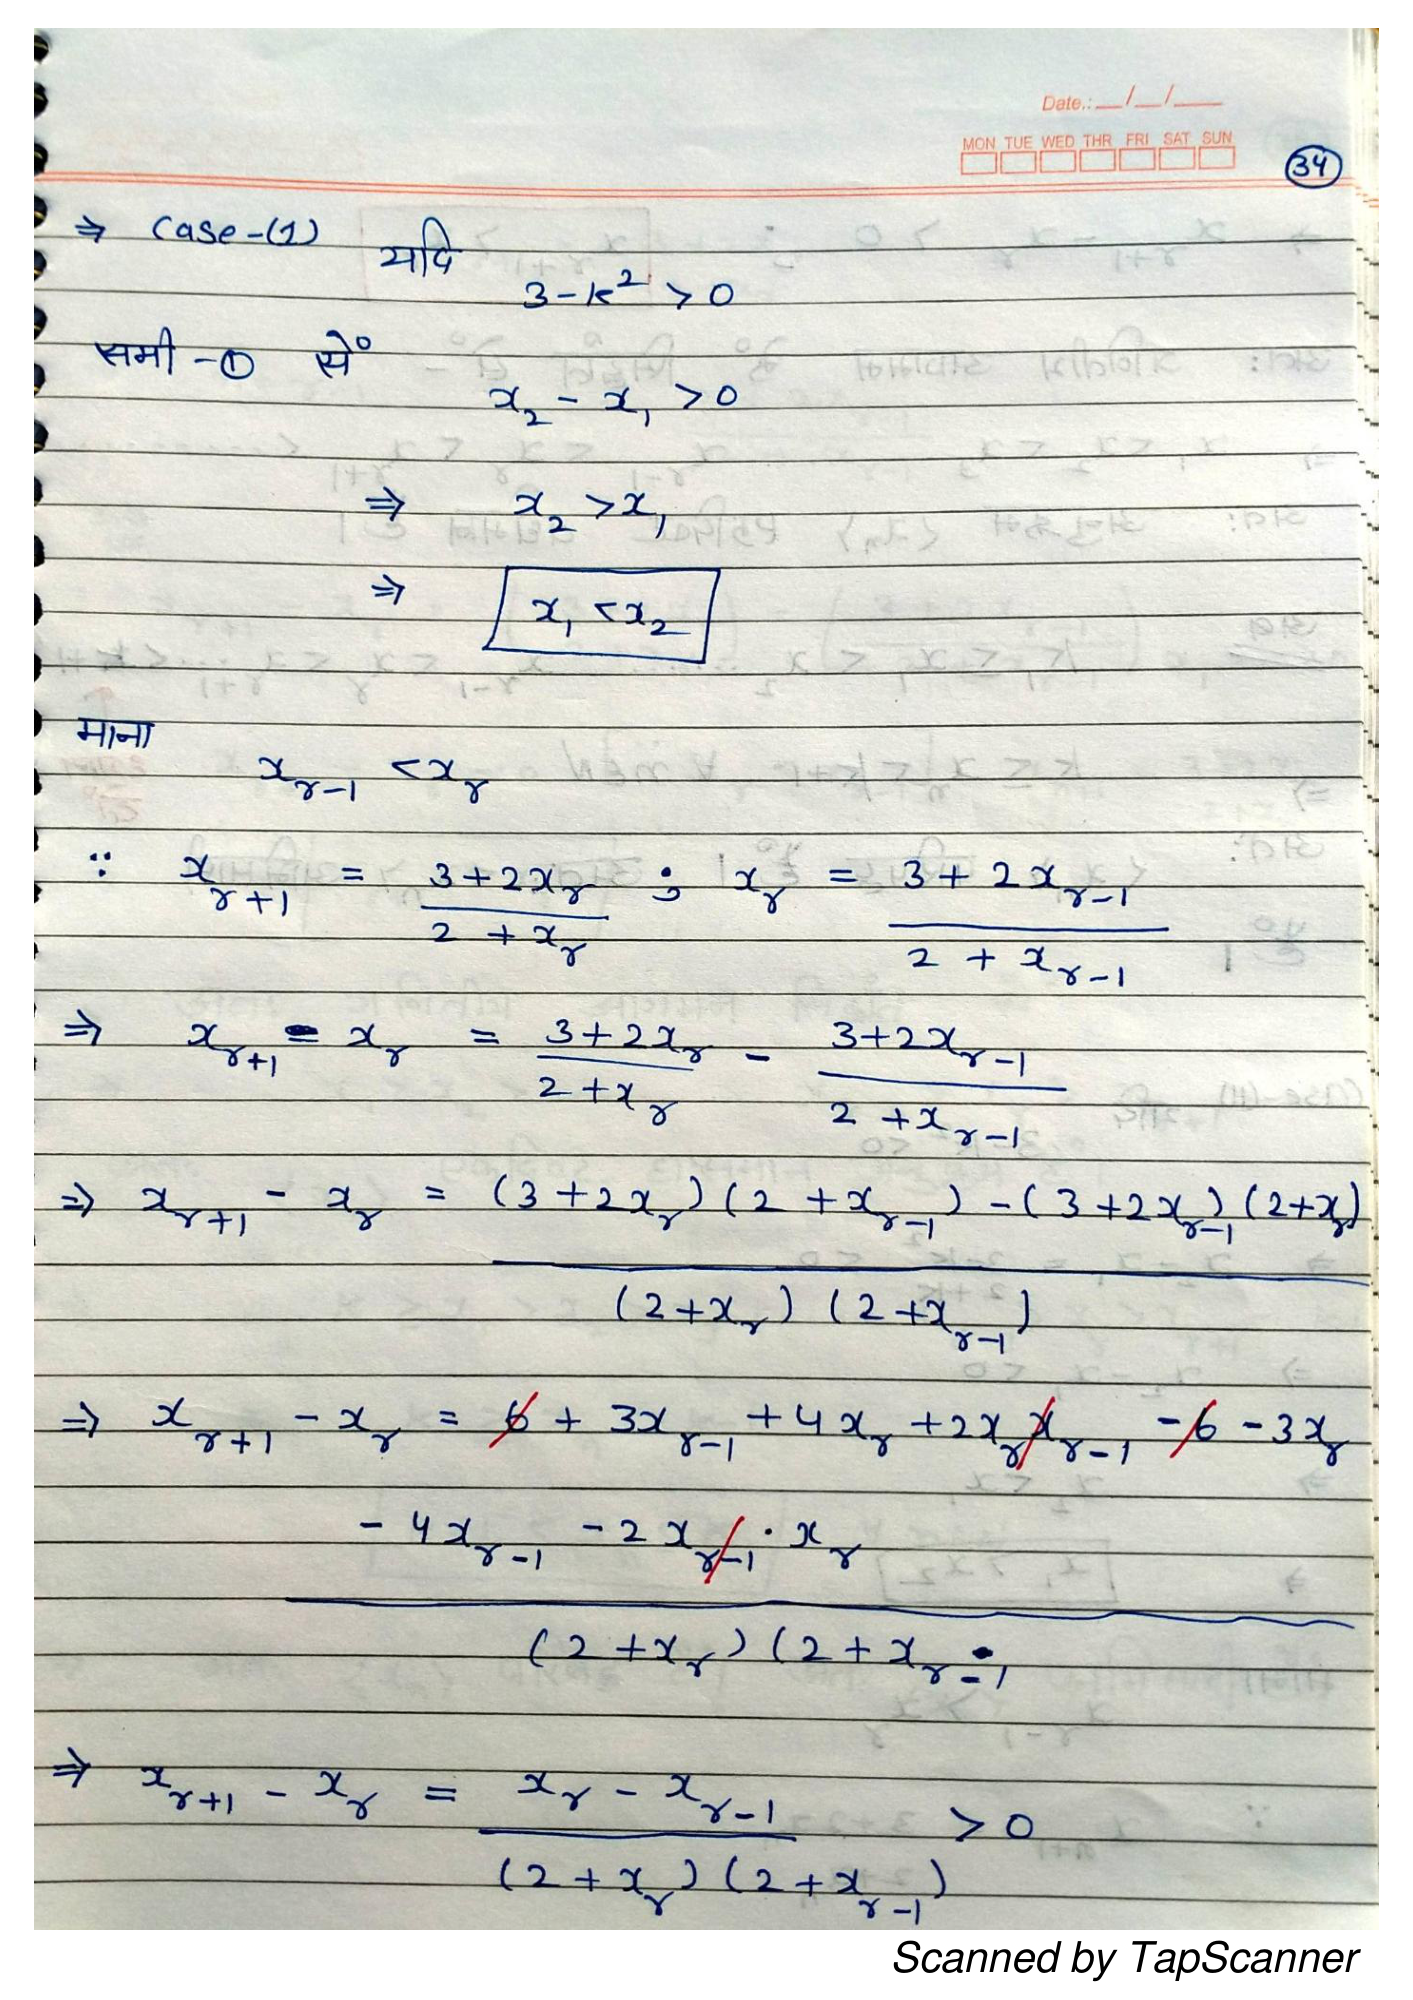 Date.: __/__/___
MON TUE WED THR FRI SAT SUN
34
⇒ Case-(1) यदि
3-k² > 0
समी -① से०
x₂ - x₁ > 0
⇒ x₂ > x₁
⇒ x₁ < x₂
माना
x_{r-1} < x_r
∵ x_{r+1} = (3+2x_r)/(2+x_r) ; x_r = (3+2x_{r-1})/(2+x_{r-1})
⇒ x_{r+1} - x_r = (3+2x_r)/(2+x_r) - (3+2x_{r-1})/(2+x_{r-1})
⇒ x_{r+1} - x_r = (3+2x_r)(2+x_{r-1}) - (3+2x_{r-1})(2+x_r)
(2+x_r) (2+x_{r-1})
⇒ x_{r+1} - x_r = 6 + 3x_{r-1} + 4x_r + 2x_r x_{r-1} - 6 - 3x_r
- 4x_{r-1} - 2x_{r-1} · x_r
(2+x_r) (2+x_{r-1}
⇒ x_{r+1} - x_r = (x_r - x_{r-1})/((2+x_r)(2+x_{r-1})) > 0
Scanned by TapScanner